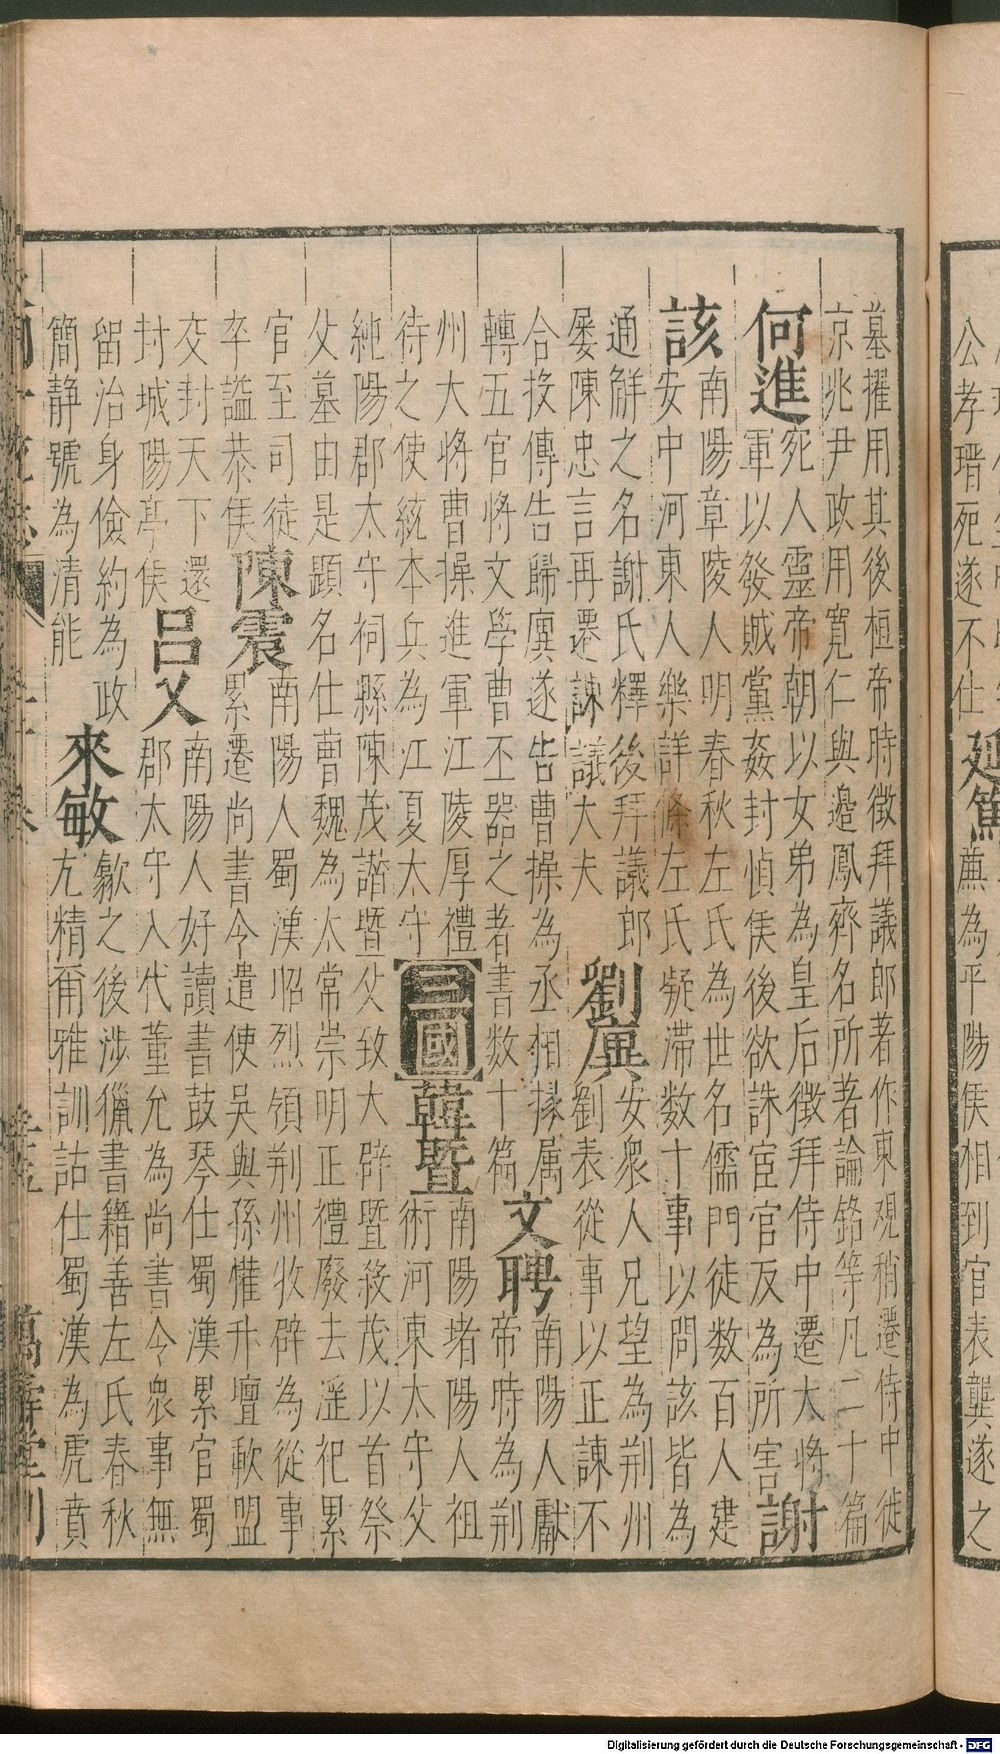 公孝瑨死遂不仕
延篤
薦為平陽侯相到官表龔遂之
墓擢用其後桓帝時徵拜議郎著作東觀稍遷侍中徙
京兆尹政用寬仁與邉鳳齊名所著論銘等凡二十篇
何進
死人靈帝朝以女弟為皇后徵拜侍中遷大將
軍以發賊黨姦封慎侯後欲誅宦官反為所害
謝
該
南陽章陵人明春秋左氏為世名儒門徒数百人建
安中河東人樂詳條左氏疑滞数十事以問該皆為
通觧之名謝氏釋後拜議郎
屡陳忠言再遷諫議大夫
劉廙
安衆人兄望為荆州
劉表從事以正諫不
合投傳告歸廙遂告曹操為丞相掾属
轉五官將文學曹丕器之者書数十篇
文聘
南陽人獻
帝時為荆
州大將曹操進軍江陵厚禮
待之使統本兵為江夏太守
三國
韓暨
南陽堵陽人祖
術河東太守父
純陽郡太守祠縣陳茂譖暨父致大辟暨殺茂以首祭
父墓由是顕名仕曹魏為太常崇明正禮廢去淫祀累
官至司徒
卒謚恭侯
陳震
南陽人蜀漢昭烈領荆州牧辟為從事
累遷尚書令遣使吳與孫權升壇歃盟
交封天下還
封城陽亭侯
呂乂
南陽人好讀書鼓琴仕蜀漢累官蜀
郡太守入代董允為尚書令衆事無
留治身儉約為政
簡静號為清能
來敏
歙之後涉獵書籍善左氏春秋
尢精爾雅訓詁仕蜀漢為虎賁
萬壽堂刊
Digitalisierung gefördert durch die Deutsche Forschungsgemeinschaft - DFG